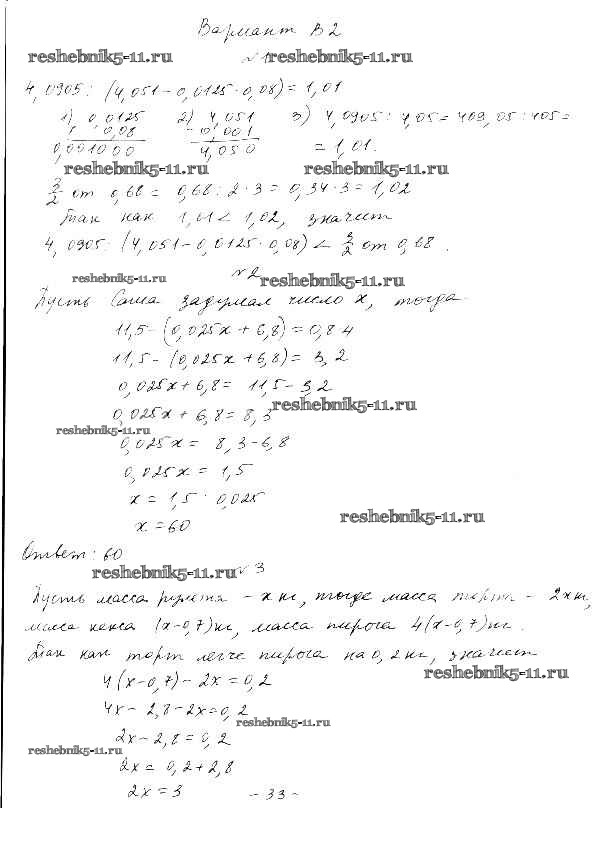 Вариант В2
reshebnik5-11.ru №1 reshebnik5-11.ru
4,0905 : (4,051 - 0,0125 · 0,08) = 1,01
1) 0,0125 2) 4,051 3) 4,0905 : 4,05 = 409,05 : 405 =
0,08 - 0,001 = 1,01.
0,001000 4,050
reshebnik5-11.ru reshebnik5-11.ru
3/2 от 0,68 = 0,68 : 2 · 3 = 0,34 · 3 = 1,02
Так как 1,01 < 1,02, значит
4,0905 : (4,051 - 0,0125 · 0,08) < 3/2 от 0,68.
reshebnik5-11.ru №2 reshebnik5-11.ru
Пусть Саша задумал число x, тогда
11,5 - (0,025x + 6,8) = 0,8 · 4
11,5 - (0,025x + 6,8) = 3,2
0,025x + 6,8 = 11,5 - 3,2
0,025x + 6,8 = 8,3 reshebnik5-11.ru
reshebnik5-11.ru
0,025x = 8,3 - 6,8
0,025x = 1,5
x = 1,5 · 0,025
x = 60
reshebnik5-11.ru
Ответ: 60
reshebnik5-11.ru №3
Пусть масса рулета - x кг, тогда масса торта - 2x кг,
масса кекса (x - 0,7) кг, масса пирога 4(x - 0,7) кг.
Так как торт легче пирога на 0,2 кг, значит
4(x - 0,7) - 2x = 0,2 reshebnik5-11.ru
4x - 2,8 - 2x = 0,2
reshebnik5-11.ru
2x - 2,8 = 0,2
reshebnik5-11.ru
2x = 0,2 + 2,8
2x = 3 - 33 -